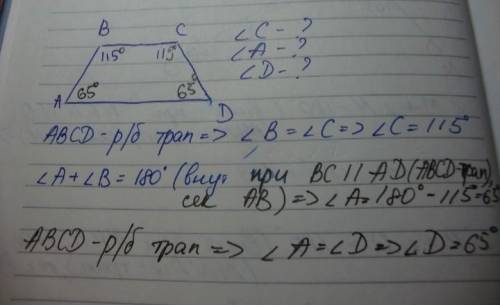 B C
115° 115°
A 65° 65° D
∠C - ?
∠A - ?
∠D - ?
ABCD - р/б трап => ∠B = ∠C => ∠C = 115°
∠A + ∠B = 180° (внут при BC || AD (ABCD-трап),
сек AB) => ∠A = 180° - 115° = 65
ABCD - р/б трап => ∠A = ∠D => ∠D = 65°